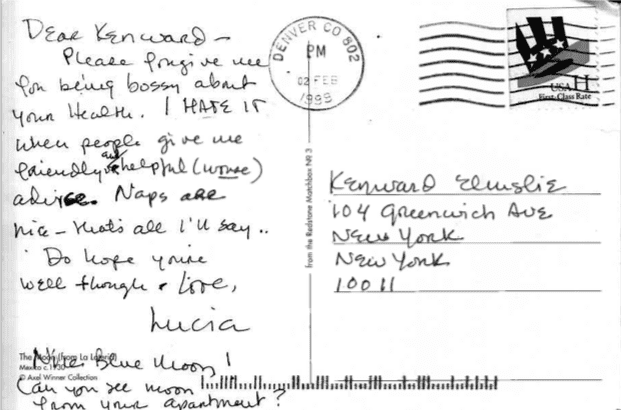 Dear Kenward –
Please forgive me
for being bossy about
your health. I HATE IT
when people give me
friendly and helpful (worse)
advice. Naps are
nice – that's all I'll say..
Do hope you're
well though & Love,
Lucia
Nice Blue Moon!
Can you see moon
from your apartment?
The Moon (from La Lotería)
Mexico c.1930
© Axel Winner Collection
from the Redstone Matchbox Nº 3
DENVER CO 802
PM
02 FEB
1999
H
USA
First-Class Rate
Kenward Elmslie
104 Greenwich Ave
New York
New York
10011